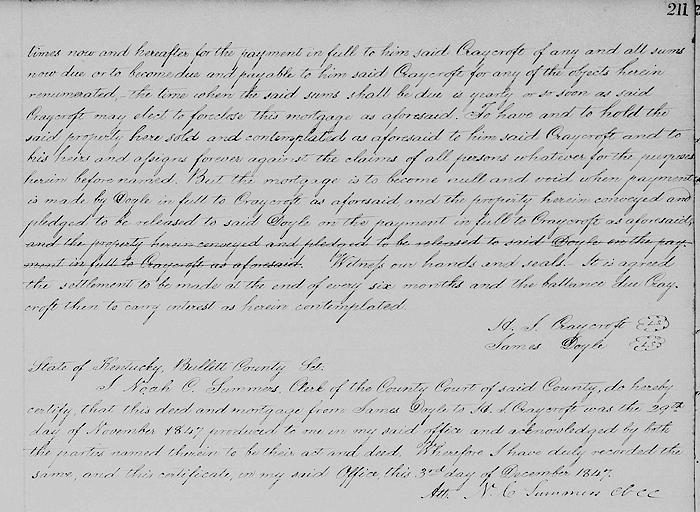 211
times now and hereafter for the payment in full to him said Craycroft of any and all sums
now due or to become due and payable to him said Craycroft for any of the objects herein
renumerated, the time when the said sums shall be due is yearly or so soon as said
Craycroft may elect to foreclose this mortgage as aforesaid. To have and to hold the
said property here sold and contemplated as aforesaid to him said Craycroft and to
his heirs and assigns forever against the claims of all persons whatever for the purposes
herein before named. But the mortgage is to become null and void when payment
is made by Doyle in full to Craycroft as aforsaid and the property herein conveyed and
pledged to be released to said Doyle on the payment in full to Craycroft as aforsaid,
and the property herein conveyed and pledged to be released to said Doyle on the pay-
ment in full to Craycroft as aforesaid. Witness our hands and seals. It is agreed
the settlement to be made at the end of every six months and the ballance due Cray-
croft then to carry interest as herein contemplated.
H. S. Craycroft L.S.
James Doyle L.S.
State of Kentucky, Bullett County Sct:
I Noah C. Summers, Clerk of the County Court of said County, do hereby
certify, that this deed and mortgage from James Doyle to H. S. Craycroft was the 29th
day of November 1847 produced to me in my said office and acknowledged by both
the parties named therein to be their act and deed. Wherefore I have duly recorded the
same, and this certificate, in my said Office, this 3rd day of December 1847.
Att. N. C. Summers cbcc